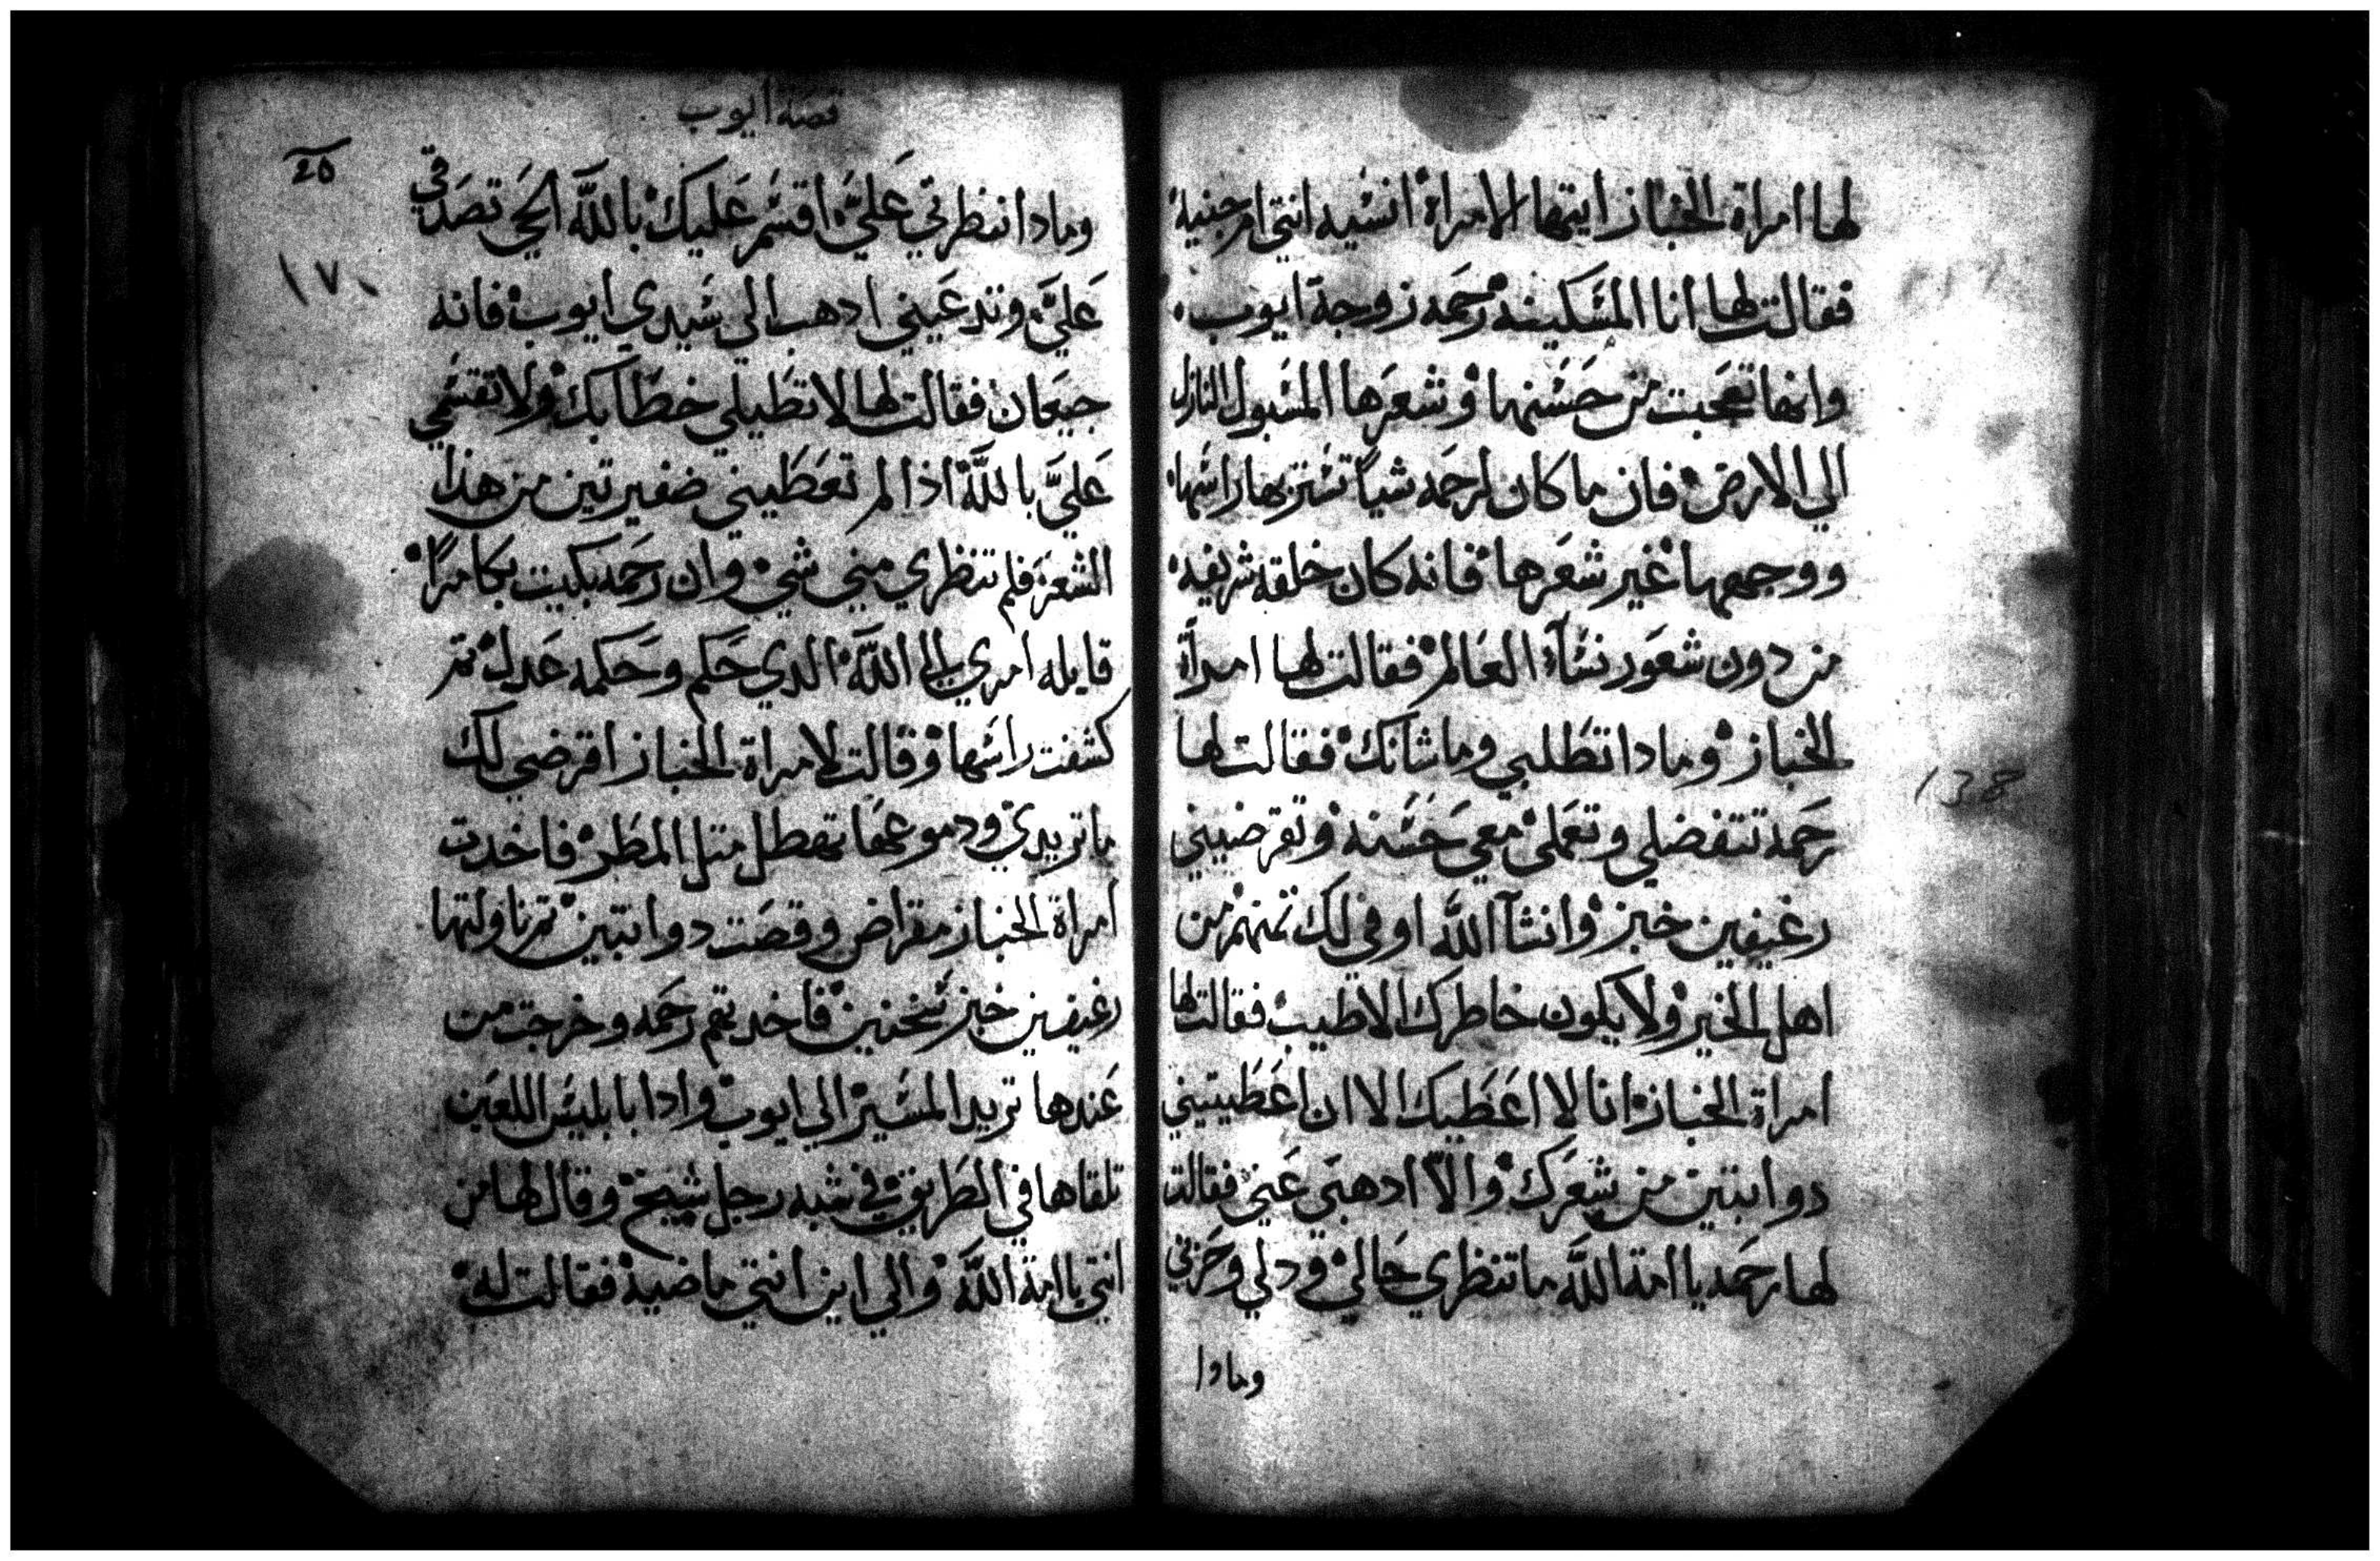 لها امراة الخباز ايتها الامراة انسيه انتي ام جنية
فقالت لها انا المسكينه رحمه زوجة ايوب
وانها تعجبت من حسنها وشعرها المسبول النازل
الي الارض فان ما كان لرحمه شياً تستر بها راسها
ووجهها غير شعرها فانه كان خلقه شريفه
من دون شعور نسآء العالم فقالت لها امرأة
الخباز ومادا تطلبي وما شانك فقالت لها
رحمة تتفضلي وتعملي معي حسنه وتقرضيني
رغيفين خبز وانشآ الله اوفي لك تمنهم من
اهل الخير ولا يكون خاطرك الا طيب فقالت لها
امراة الخباز انا لا اعطيك الا ان اعطيتيني
دوابتين من شعرك والاّ ادهبي عني فقالت
لها رحمه يا امة الله ما تنظري حالي ودلي وحزني
ومادا
قصة ايوب
25
١٧٠
138
ومادا انتظرتي عليَّ اقسم عليك بالله الحي تصدقي
عليَّ وتدعيني ادهب الي سيدي ايوب فانه
جيعان فقالت لها لا تطيلي خطابك ولا تقسمي
عليَّ بالله اذا لم تعطيني ضفيرتين من هذا
الشعر فلم تنظري مني شي وان رحمه بكيت بكا مراً
قايله امري الي الله الدي حكم وحكمه عدل تم
كشفت راسها وقالت لامراة الخباز اقرضي لك
ما تريدي ودموعها تهطل متل المطر فاخدت
امراة الخباز مقراض وقصت دوابتين تم ناولتها
رغيفين خبز سخنين فاخدتهم رحمه وخرجت من
عندها تريد المسير الي ايوب وادا بابليس اللعين
تلقاها في الطريق في شبه رجل شيخ وقال لها من
انتي يا امة الله والي اين انتي ماضية فقالت له